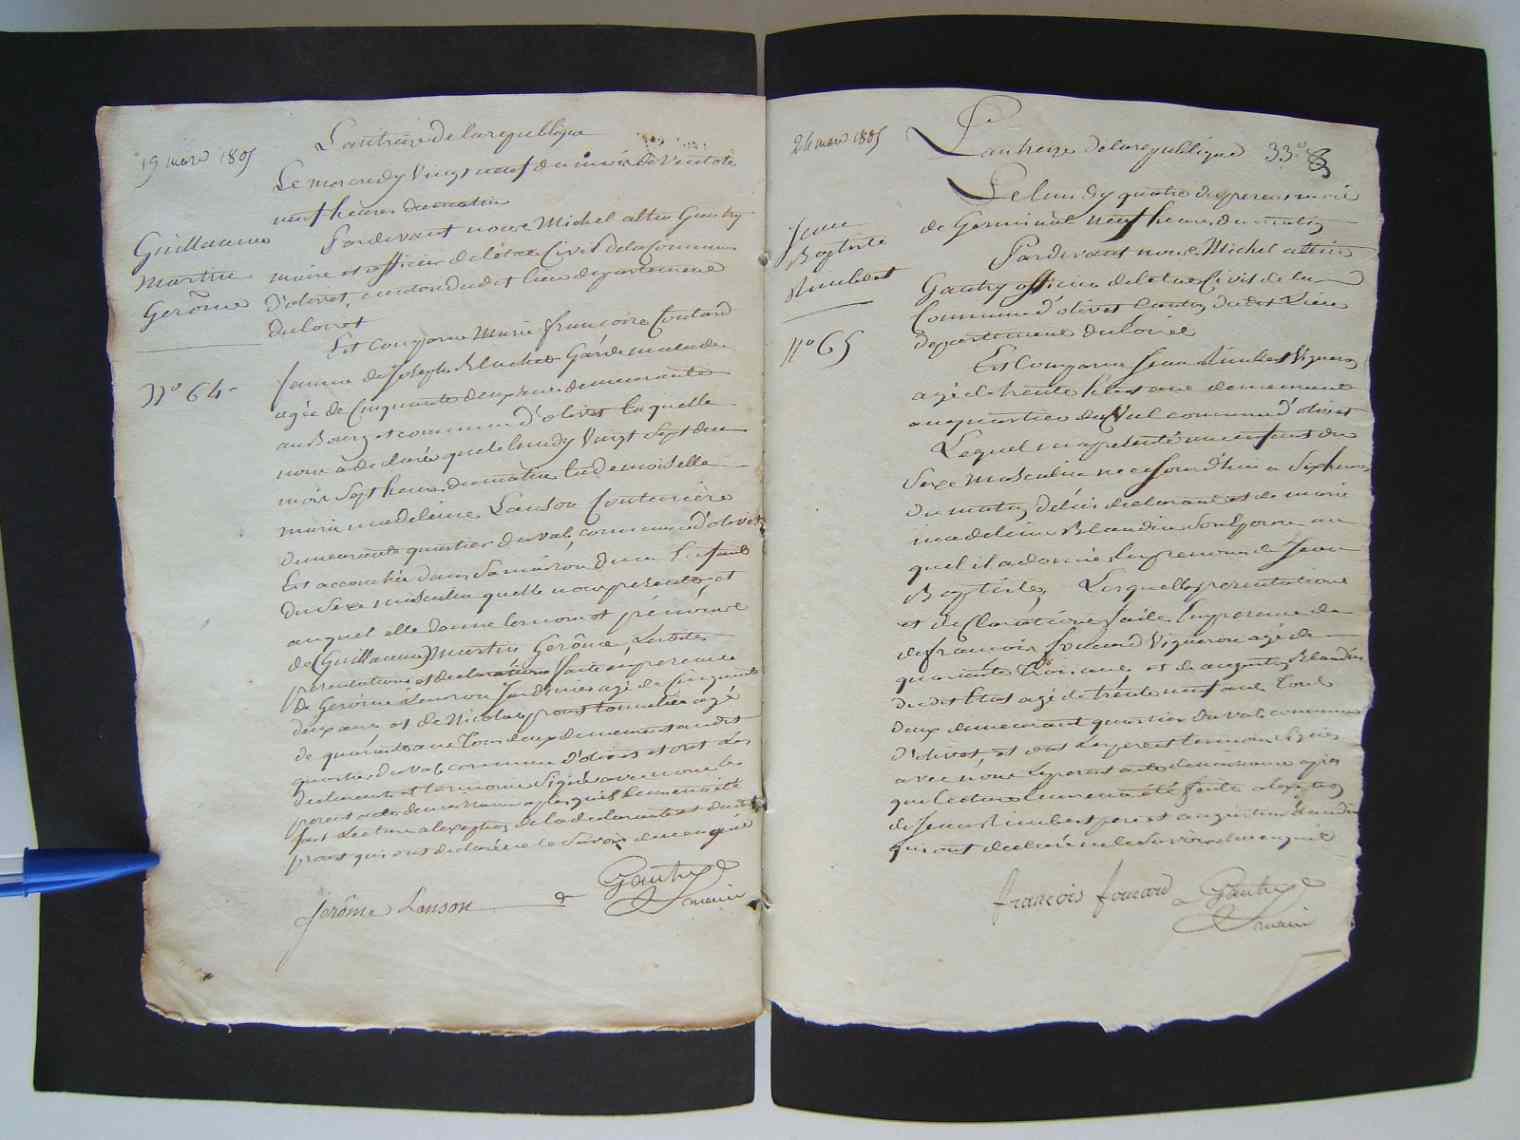 19 mars 1805
L'an treize de la republique
Le mercredy Vingt neuf du mois de Ventose
neuf heures du matin
Guillaume
Martin
Gerôme
Pardevant nous Michel altin Gautry
maire et officier de l'état Civil de la Commune
d'olivet, canton du dit lieu departement
du loiret
Est Comparue Marie françoise Coutard
No 64
femme de Joseph Garde malade
agée de Cinquante deux ans demeurante
au Bourg et commune d'olivet laquelle
nous a declaré que le lundy Vingt Sept du
mois Sept heures du matin la Demoiselle
marie madeleine Lanson Couturière
demeurante quartier du val, commune d'olivet
Est accouchée dans Sa maison d'un Enfant
du Sexe masculin quelle nous presente, et
auquel elle donne les nom et prénoms
de (Guillaume) Martin Gerôme, Lesdites
presentations et declarations faites en presence
de Gerôme Lanson Jardinier agé de Cinquante
deux ans et de Nicolas proust tonnelier agé
de quarante ans tous deux demeurant au dit
quartier du val commune d'olivet et ont Les
declarants et temoins Signé avec nous le
present acte de naissance apres qu'il Leur en a été
fait Lecture a l'exception de la declarante et dudit
proust qui ont declaré ne le Savoir de ce enquis
Jerôme Lanson
Gautry
maire
24 mars 1805
L'an treize de la republique 33
Le lundy quatre du present mois
de Germinal neuf heures du matin
Jean
Baptiste
Rimbert
Pardevant nous Michel altin
Gautry officier de l'état Civil de la
Commune d'olivet Canton du dit Lieu
departement du Loiret
No 65
Est Comparu Jean Rimbert Vigneron
agé de trente ans demeurant
au quartier du Val commune d'olivet
Lequel m'a presenté un enfant du
Sexe masculin né ce Jourd'hui a Six heures
du matin, de lui declarant et de marie
madeleine Blandin Son Epouse au
quel il a donné Les prenoms de Jean
Baptiste, Lesquelles presentations
et declarations faites En presence de
de francois fouard Vigneron agé de
quarante trois ans, et de augustin Blandin
du dit Etat agé de trente neuf ans tous
deux demeurant quartier du val commune
d'olivet, et ont Le pere et temoins Signés
avec nous Le present acte de naissance apres
que lecture Leur en a été faite a l'exception
de Jean Rimbert pere et augustin Blandin
qui ont declaré ne le Savoir de ce enquis
francois fouard
Gautry
maire